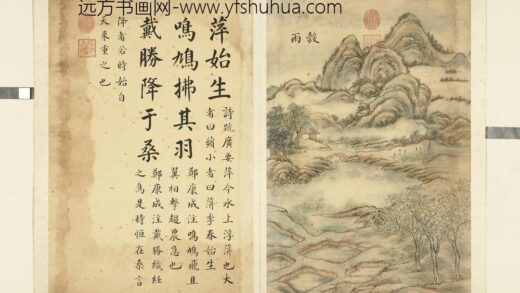 远方书画网-www.yfshuhua.com
穀雨
萍始生
詩疏廣要萍今水上浮萍也大
者曰蘋小者曰萍季春始生
鳴鳩拂其羽
鄭康成注鳴鳩飛且
翼相擊趨農急也
戴勝降于桑
鄭康成注戴勝織紝
之鳥是時恒在桑言
降者若時始自
天來重之也